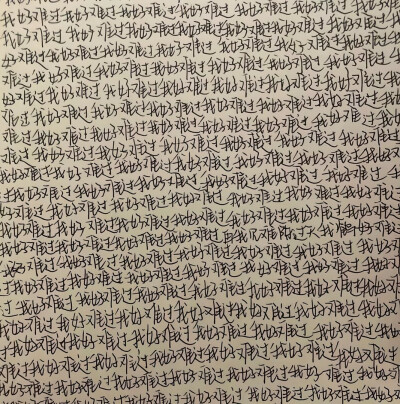 我好难过我好难过我好难过我好难过我好难过
我好难过我好难过我好难过我好难过我好难过我好
好难过我好难过我好难过我好难过我好难过我好难过
好难过我好难过我好难过我好难过我好难过我好难过
好难过我好难过我好难过我好难过我好难过我好难过
难过我好难过我好难过我好难过我好难过我好难过
难过我好难过我好难过我好难过我好难过我好难过
难过我好难过我好难过我好难过我好难过我好难过
过我好难过我好难过我好难过我好难过我好难过我
过我好难过我好难过我好难过我好难过我好难过我好
我好难过我好难过我好难过我好难过我好难过我好
好难过我好难过我好难过我好难过我好难过我好难过
好难过我好难过我好难过我好难过我好难过
我好难过我好难过我好难过我好难过我好难过
难过我好难过我好难过我好难过我好难过我好难过
过我好难过我好难过我好难过我好难过我好难过我好
好难过我好难过我好难过我好难过我好难过我好难过
好难过我好难过我好难过我好难过我好难过我好难过
过我好难过我好难过我好难过我好难过我好难过
难过我好难过我好难过我好难过我好难过我好难过
好难过我好难过我好难过我好难过我好难过我好难过